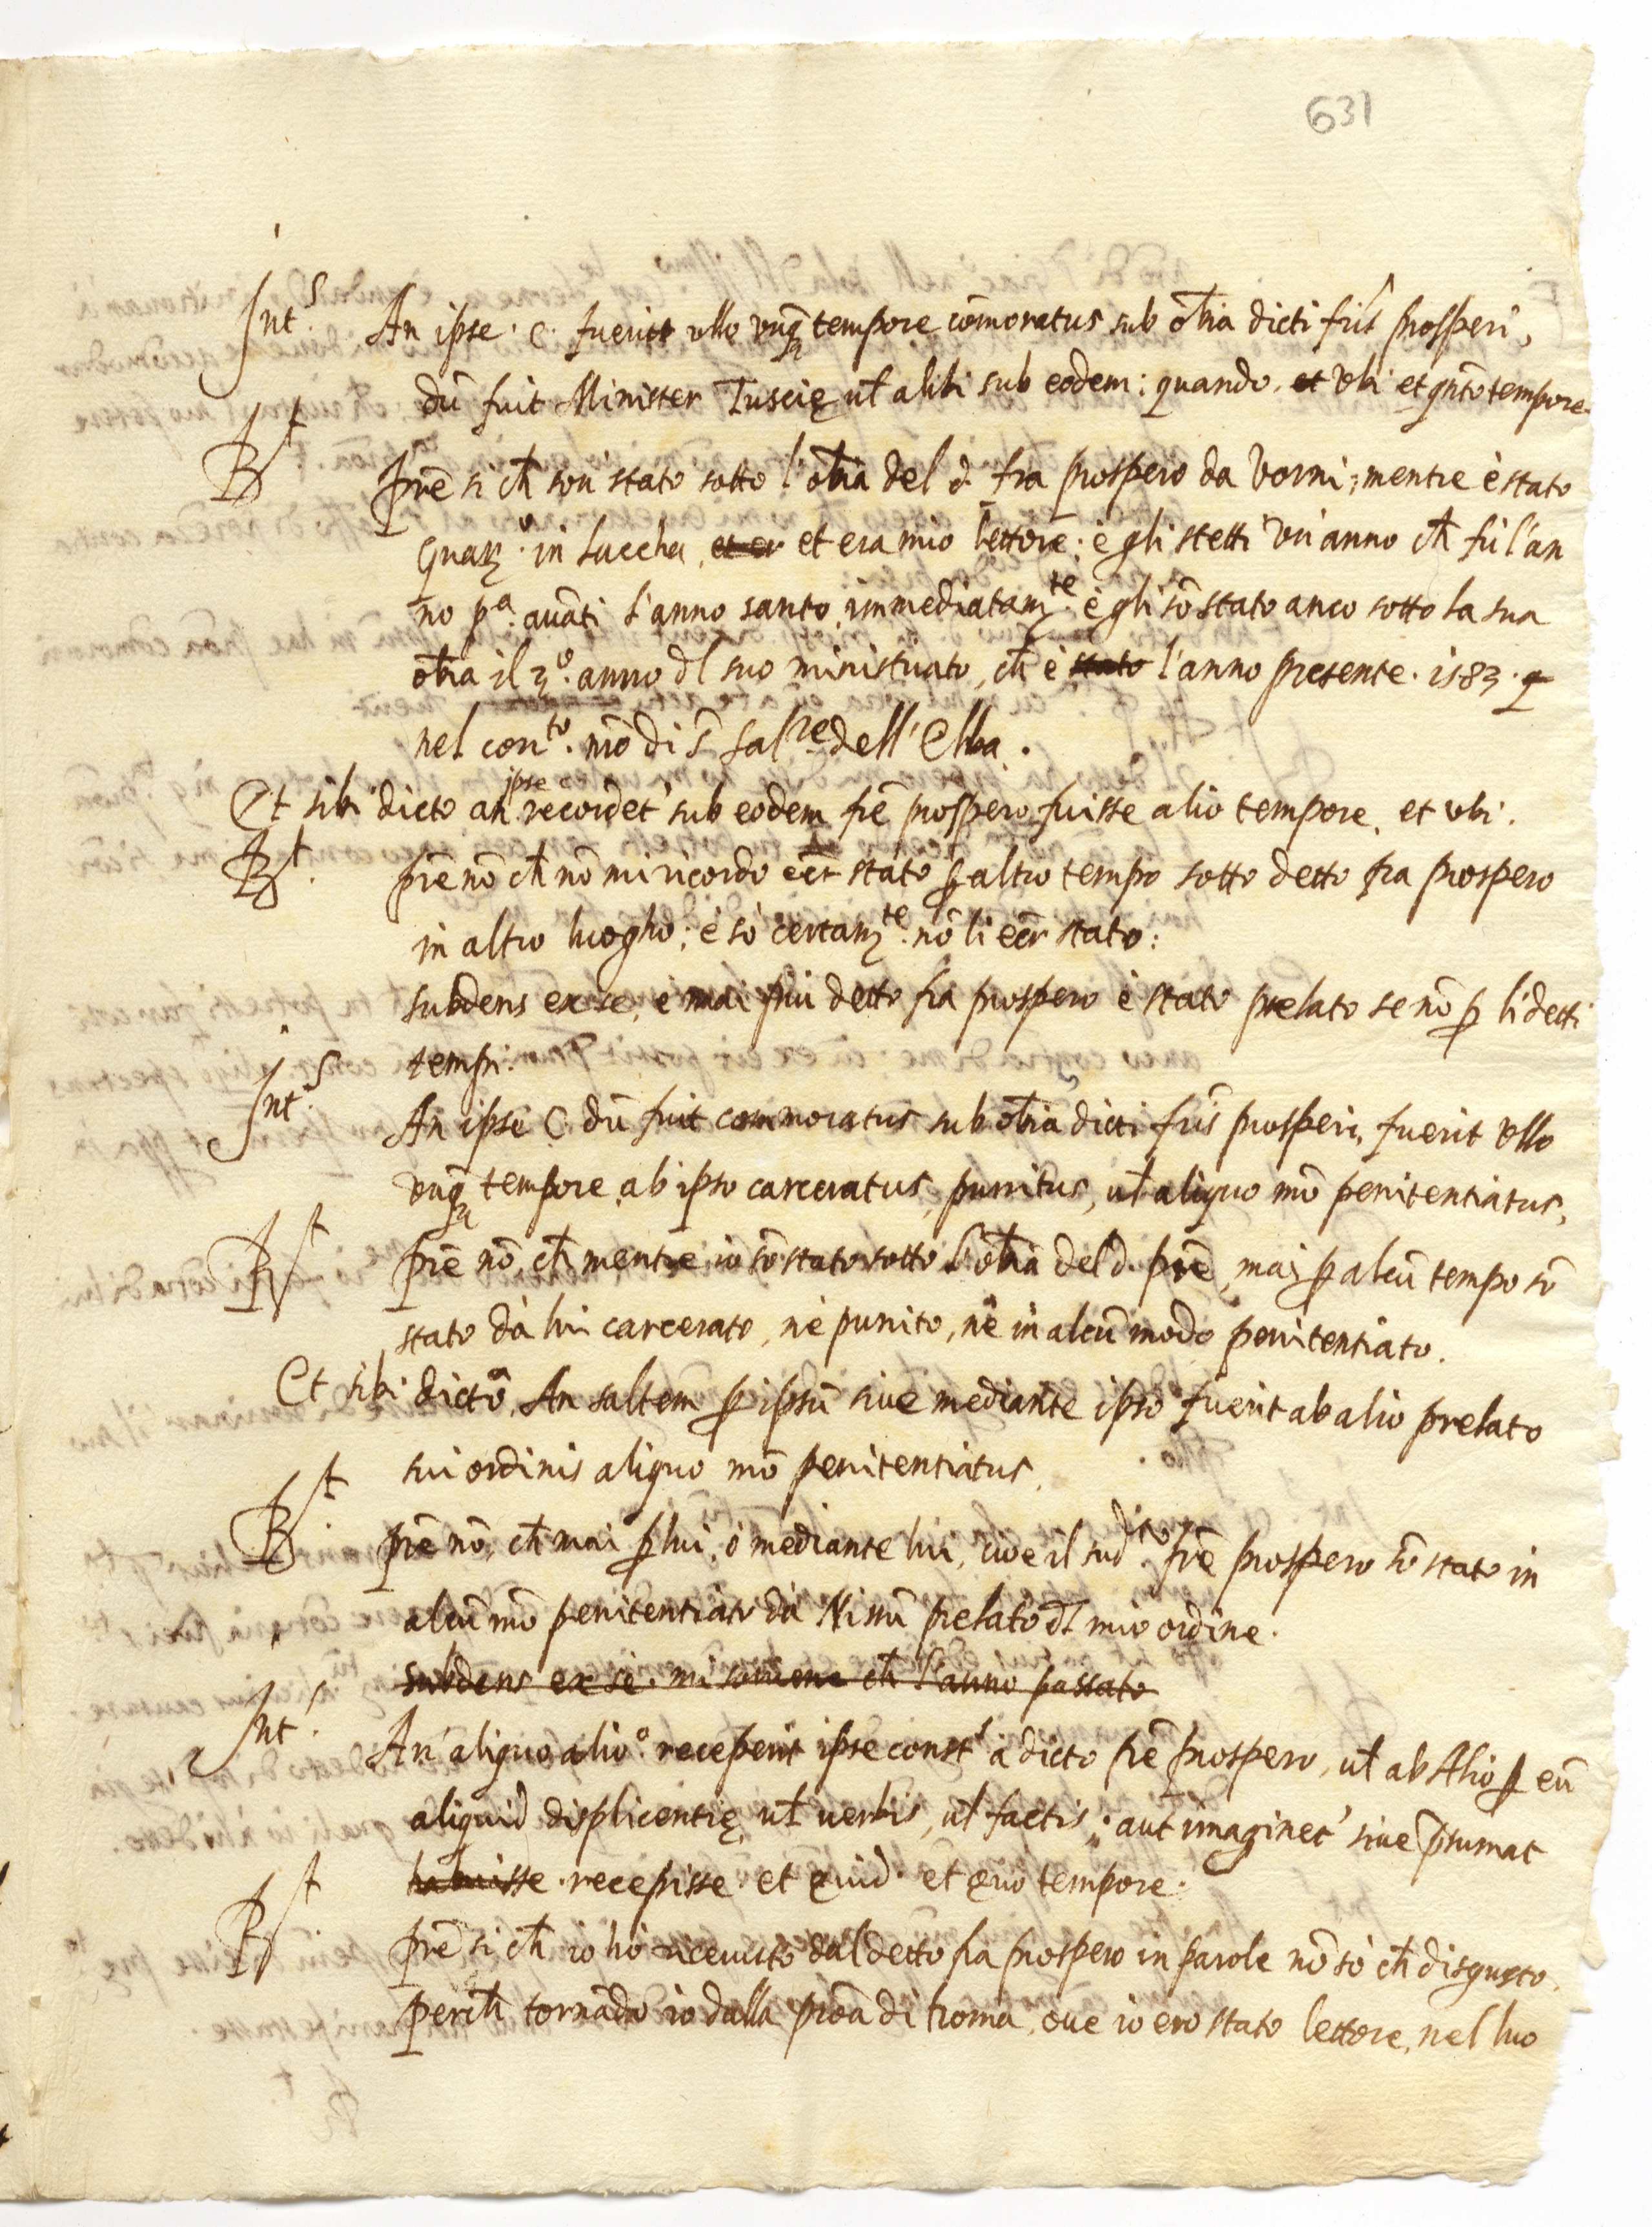 631
Int.s An ipse · C · fuerit ullo vnq̃ tempore cōmoratus sub obĩa dicti fr̃is prosperi,
dū fuit Minister Tuscię ul̃ alibi sub eodem; quando, et vbi et qñto tempore.
Rt. pr̃e si ch̃ son stato sotto l'obĩa del d. fra prospero da Vorni; mentre è stato
Guarn. in Luccha, et er et era mio lettore; è gli stetti un' anno ch̃ fù l'an
no pa. auāti l'anno santo, immediatamte. è gli sō stato anco sotto la sua
obĩa il 3o. anno dl suo ministrato, ch̃ è stato l'anno presente · 1583 · q
nel conto. nr̃o di s. salre dell'Elba.
Et sibi dicto an ipse recordet' sub eodem fr̃e prospero fuisse alio tempore, et vbi.
Rt. pr̃e nō ch̃ nō mi ricordo eēr stato ꝑ altro tempo sotto detto fra prospero
in altro luogho; è sò certamte. nō li eēr stato:
subdens ex se, e mai piu detto fra prospero è stato prelato se nō ꝑ li detti
tempi.
Int.s An ipse C. dū fuit commoratus sub obĩa dicti fr̃is prosperi, fuerit ullo
vnq̃ tempore ab ipso carceratus, punitus, ul̃ aliquo mō penitentiatus,
Rt pr̃e nō, ch̃ mentre io sō stato sotto l'obĩa del d. pr̃e, mai ꝑ alcū tempo sō
stato dà lui carcerato, nè punito, nè in alcū modo penitentiato.
Et sibi dicto, An saltem ꝑ ipsū siue mediante ipso fuerit ab alio prelato
sui ordinis aliquo mō penitentiatus,
Rt. pr̃e nō, ch̃ mai ꝑ lui, ò mediante lui, cioe il sudto. fr̃e prospero sō stato in
alcū mō penitentiato dà Nissū prelato dl mio ordine.
subdens ex se · mi souiene ch̃ l'anno passato
Int.s An aliquo alio · receperit ipse const.s à dicto fr̃e prospero, ul̃ ab Alio ꝑ eū
aliquid displicentię, ul̃ uerbis, ul̃ factis; aut imaginet' siue p̃sumat
habuisse · recepisse et quid · et quo tempore.
Rt pr̃e si ch̃ io hò riceuuto dal detto fra prospero in parole nō sò ch̃ disgusto,
perch̃ tornādo io dalla prōa di roma, oue io ero stato lettore, nel luo